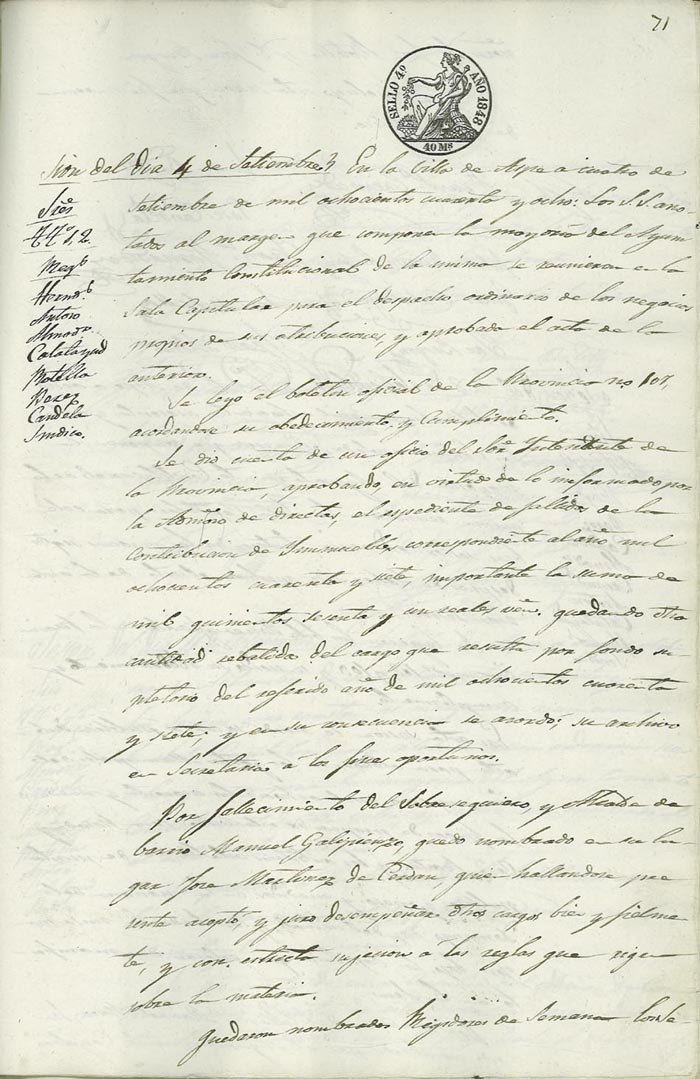 71
SELLO 4º AÑO 1848
40 Ms
Sion del dia 4 de Setiembre En la Villa de Aspe a cuatro de
Sres
Setiembre de mil ochocientos cuarenta y ocho: Los S.S. ano-
1. 2.
tados al margen que componen la mayoria del Ayun
tamiento Constitucional de la misma se reunieron en la
Hernz
Sala Capitular para el despacho ordinario de los negocios
Antoro
propios de sus atribuciones, y aprobada el acta de la
Almodr
Calatayud
anterior.
Botella
Se leyo el boletin oficial de la Provincia no 107,
Perez
Candela
acordandose su obedecimiento y cumplimiento.
Sindico.
Se dio cuenta de un oficio del Sor Intendente de
la Provincia, aprobando, en virtud de lo informado por
la Admon de directas, el espediente de fallidos de la
contribucion de Inmuebles correspondiente al año mil
ochocientos cuarenta y siete, importante la suma de
mil quinientos sesenta y un reales von. quedando dha
cantidad rebatida del cargo que resulta por fondo su
pletorio del referido año de mil ochocientos cuarenta
y siete; y en su consecuencia se acordó; su archivo
en Secretaria á los fines oportunos.
Por fallecimiento del Sobresequiero, y Alcalde de
barrio Manuel Galipienzo, quedo nombrado en su lu
gar Jose Martinez de Cerdan, que hallandose pre
sente aceptó, y juro desempeñar dhos cargos bien y fielmen
te, y con estricta sujecion á las reglas que rigen
sobre la materia.
Quedaron nombrados Regidores de Semana los Se